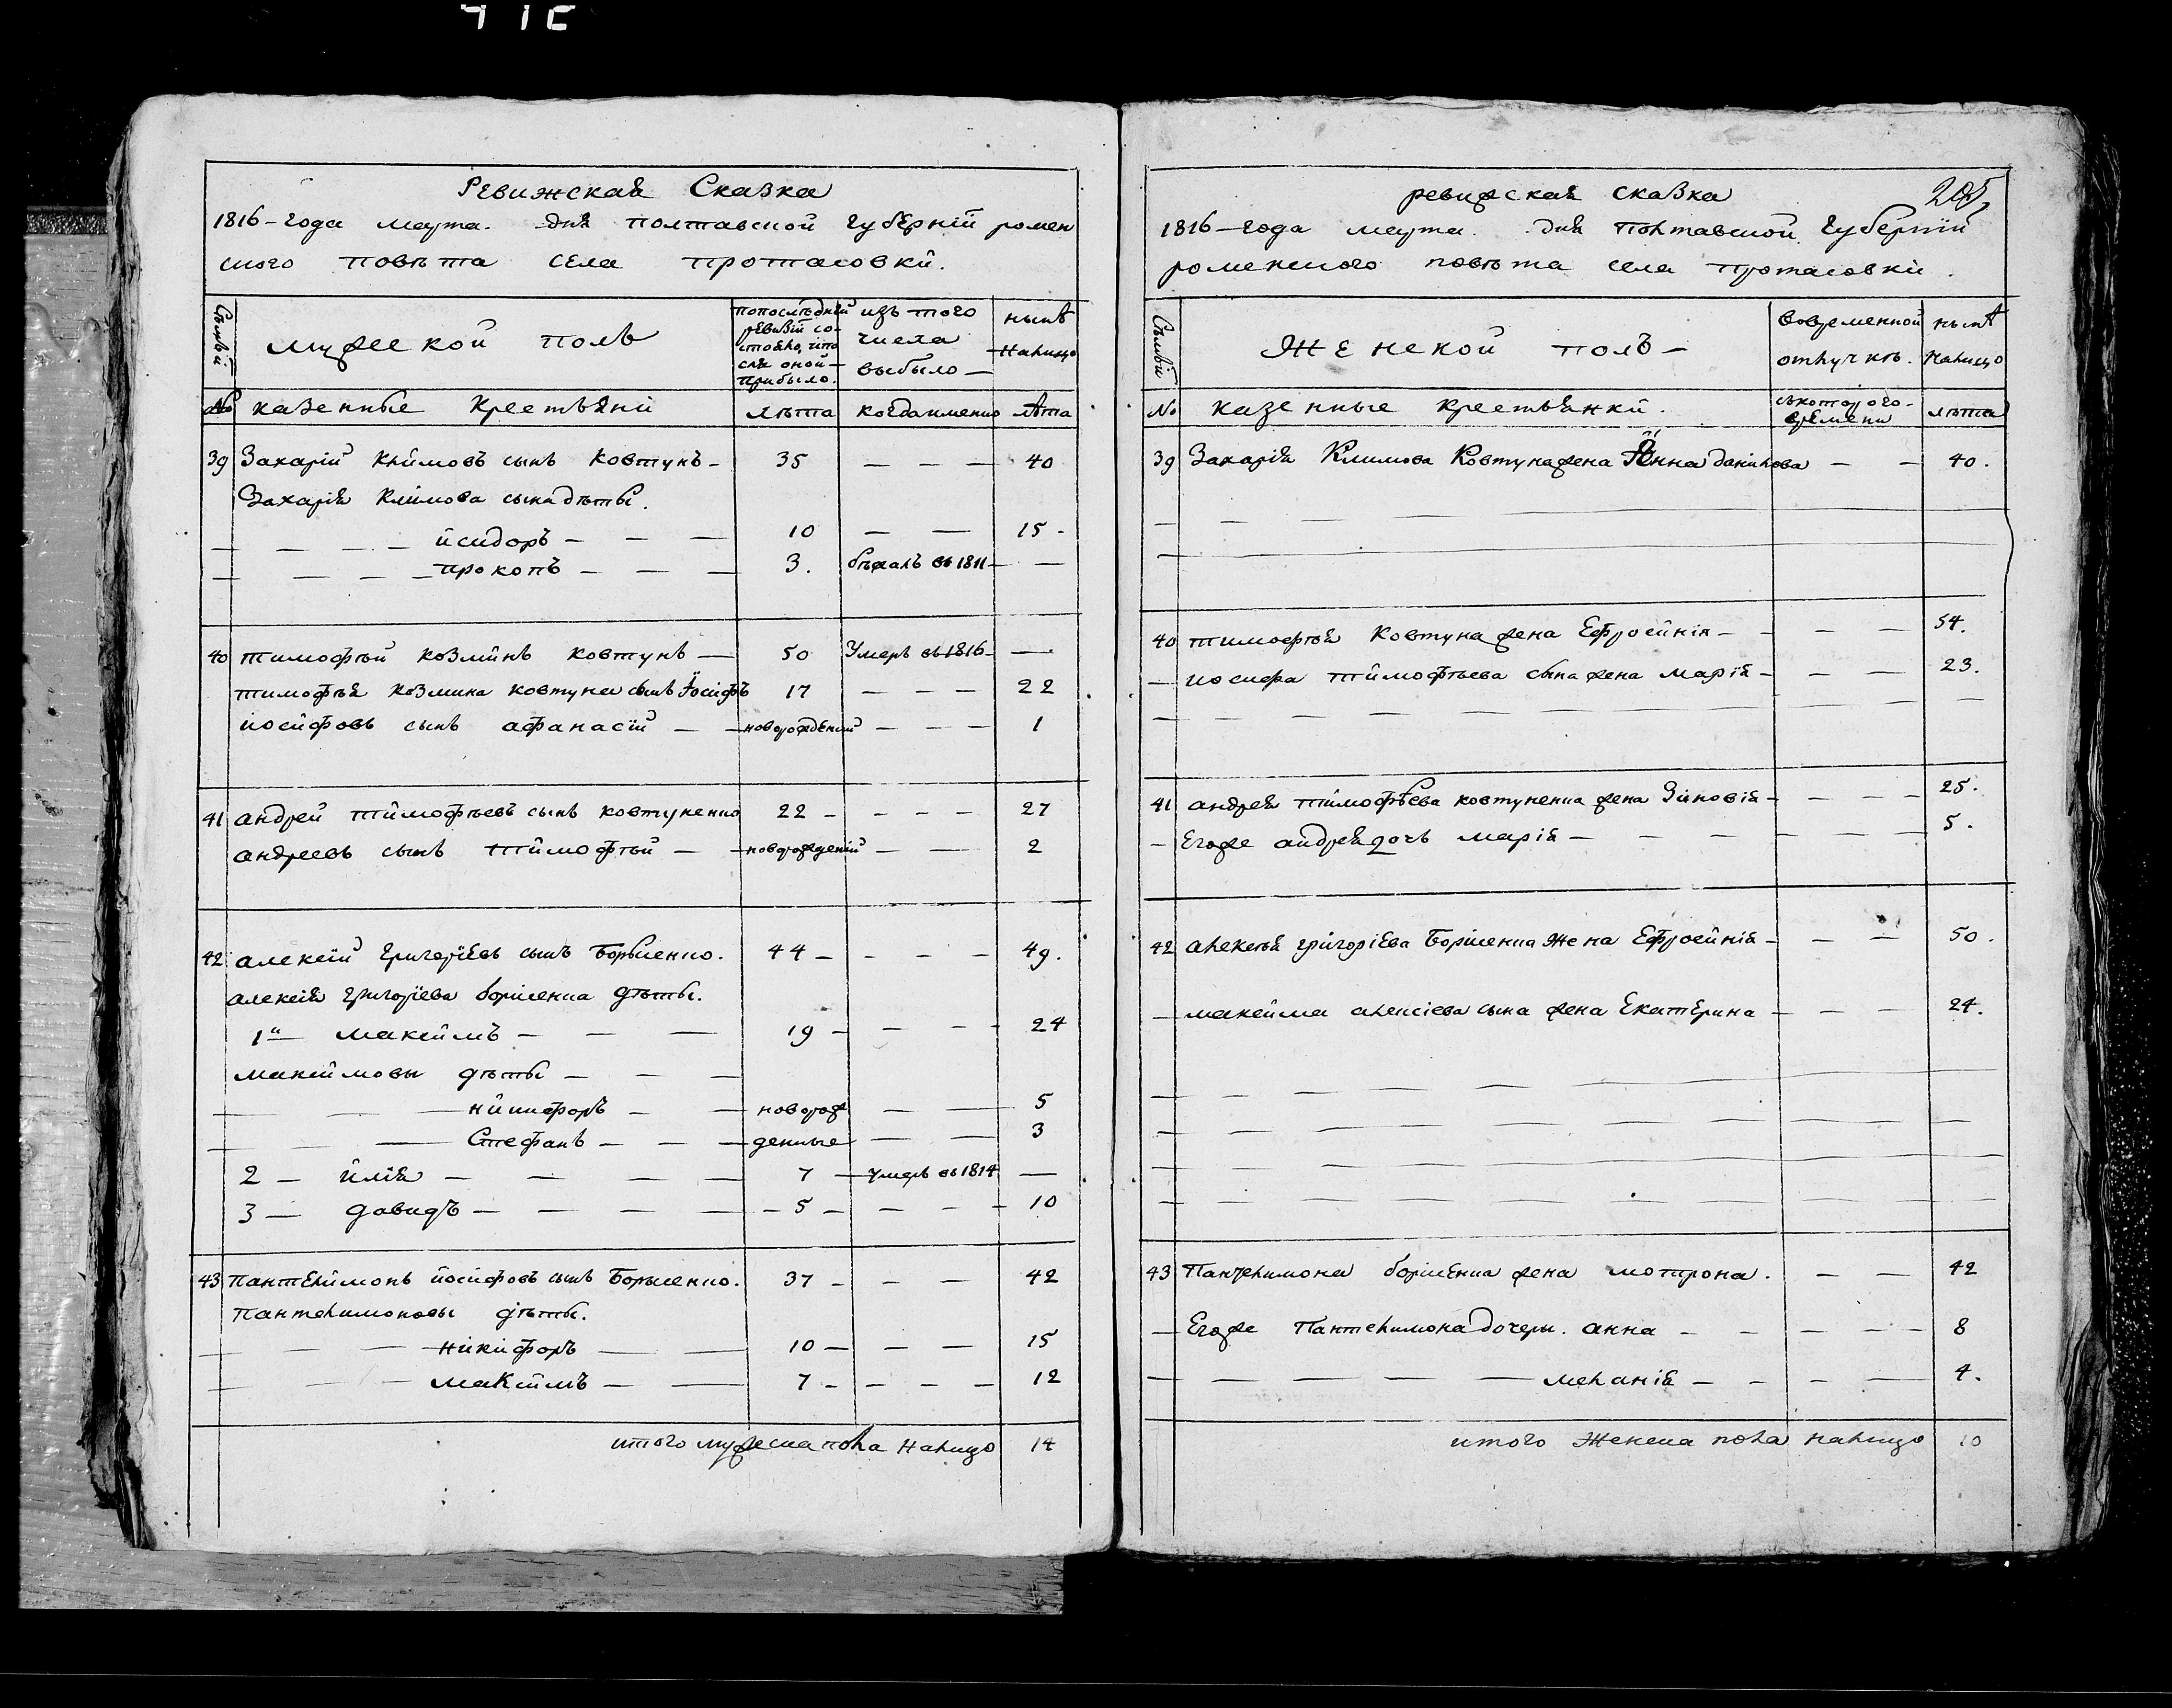 Ревижская Сказка
1816-года марта. дня полтавской губернїи ромен
ского повѣта села протасовки.
Сѣмьи
мужеской полъ
попослѣдней
ревизїи со-
стояло, ипо
сля оной
прибыло.
изъ того
числа
выбыло
нынѣ
налицо
№ казенные крестьяни лѣта когдаименно лѣта
39 Захарїй Климовъ сынъ Ковтунъ 35 40
Захарїя Климова сына дѣты.
исидоръ 10 15
прокопъ 3. бѣжалъ въ 1811
40 тимофѣй козминъ ковтунъ 50 Умеръ въ 1816
тимофѣя козмина ковтуна сынъ Іосифъ 17 22
иосифовъ сынъ афанасїй новорожденїй 1
41 андрей тимофѣевъ сынъ ковтуненко 22 27
андреевъ сынъ тимофѣй новорожденїй 2
42 алексїй григорїевъ сынъ Борисенко. 44 49.
алексїя григорїева борисенка дѣты.
1й максимъ 19 24
максимовы дѣты
никифоръ новорож 5
Стефанъ денные 3
2 илїя 7 умеръ въ 1814
3 давидъ 5 10
43 пантелимонъ йосифовъ сынъ Борисенко. 37 42
пантелимоновы дѣты.
никифоръ 10 15
максимъ 7 12
итого мужеска пола налицо 14
205
ревижская сказка
1816-года марта. дня полтавской губернїи
роменского повѣта села протасовки.
Сѣмьи
Женской полъ
вовременной
отлучкѣ.
нынѣ
налицо
№ казенные крестьянки. съкоторого
времени
лѣта
39 Захарїя Климова Ковтуна жена Анна данилова 40.
40 тимофѣя Ковтуна жена Ефросинїя 54.
иосифа тимофѣева сына жена марїя 23.
41 андрея тимофѣева ковтуненка жена Зиновїя 25.
Егоже андрея дочь марїя 5.
42 алексѣя григорїева Борисенка Жена Ефросинїя 50.
максима алексїева сына жена Екатерина 24.
43 Пантелимона борисенка жена мотрона. 42
Егоже Пантелимона дочери. анна 8
меланїя 4.
итого Женска пола налицо 10